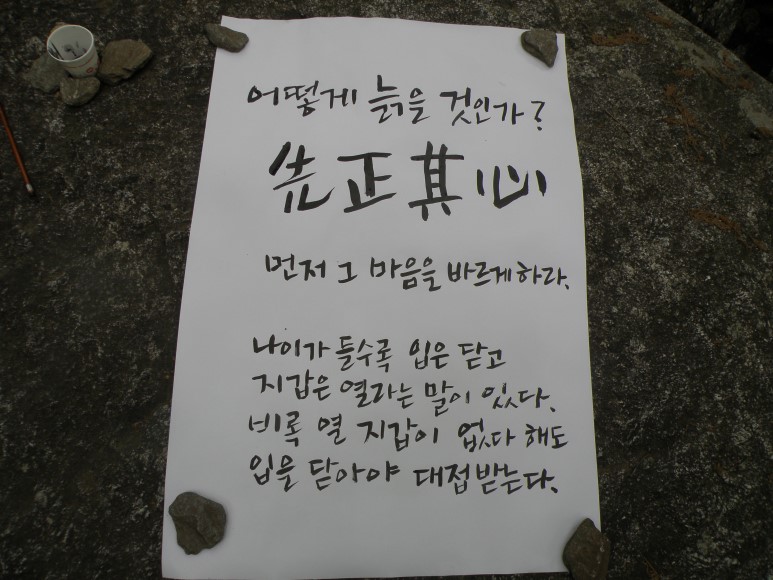 어떻게 늙을 것인가?
先正其心
먼저 그 마음을 바르게하라.
나이가 들수록 입은 닫고
지갑은 열라는 말이 있다.
비록 열 지갑이 없다 해도
입을 닫아야 대접받는다.